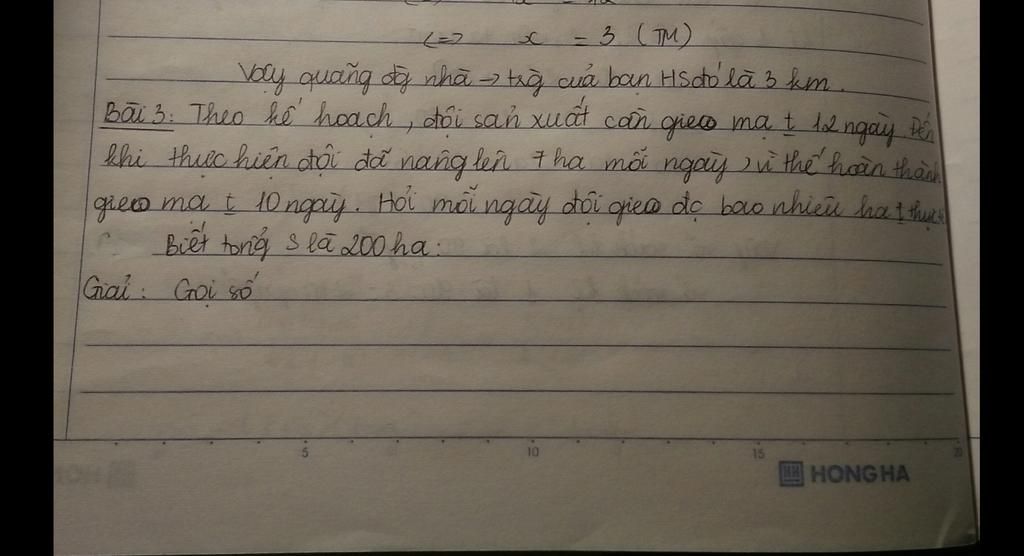 <=> x = 3 (TM)
Vậy quãng đg nhà → trg của bạn HS đó là 3 km.
Bài 3: Theo kế hoạch, đội sản xuất cần gieo mạ t 12 ngày Đến
khi thực hiện đội đã nâng lên 7 ha mỗi ngày, vì thế hoàn thành
gieo mạ t 10 ngày. Hỏi mỗi ngày đội gieo đc bao nhiêu ha t
Biết tổng S là 200 ha:
Giải: Gọi số
5 10 15 20
HONG HA